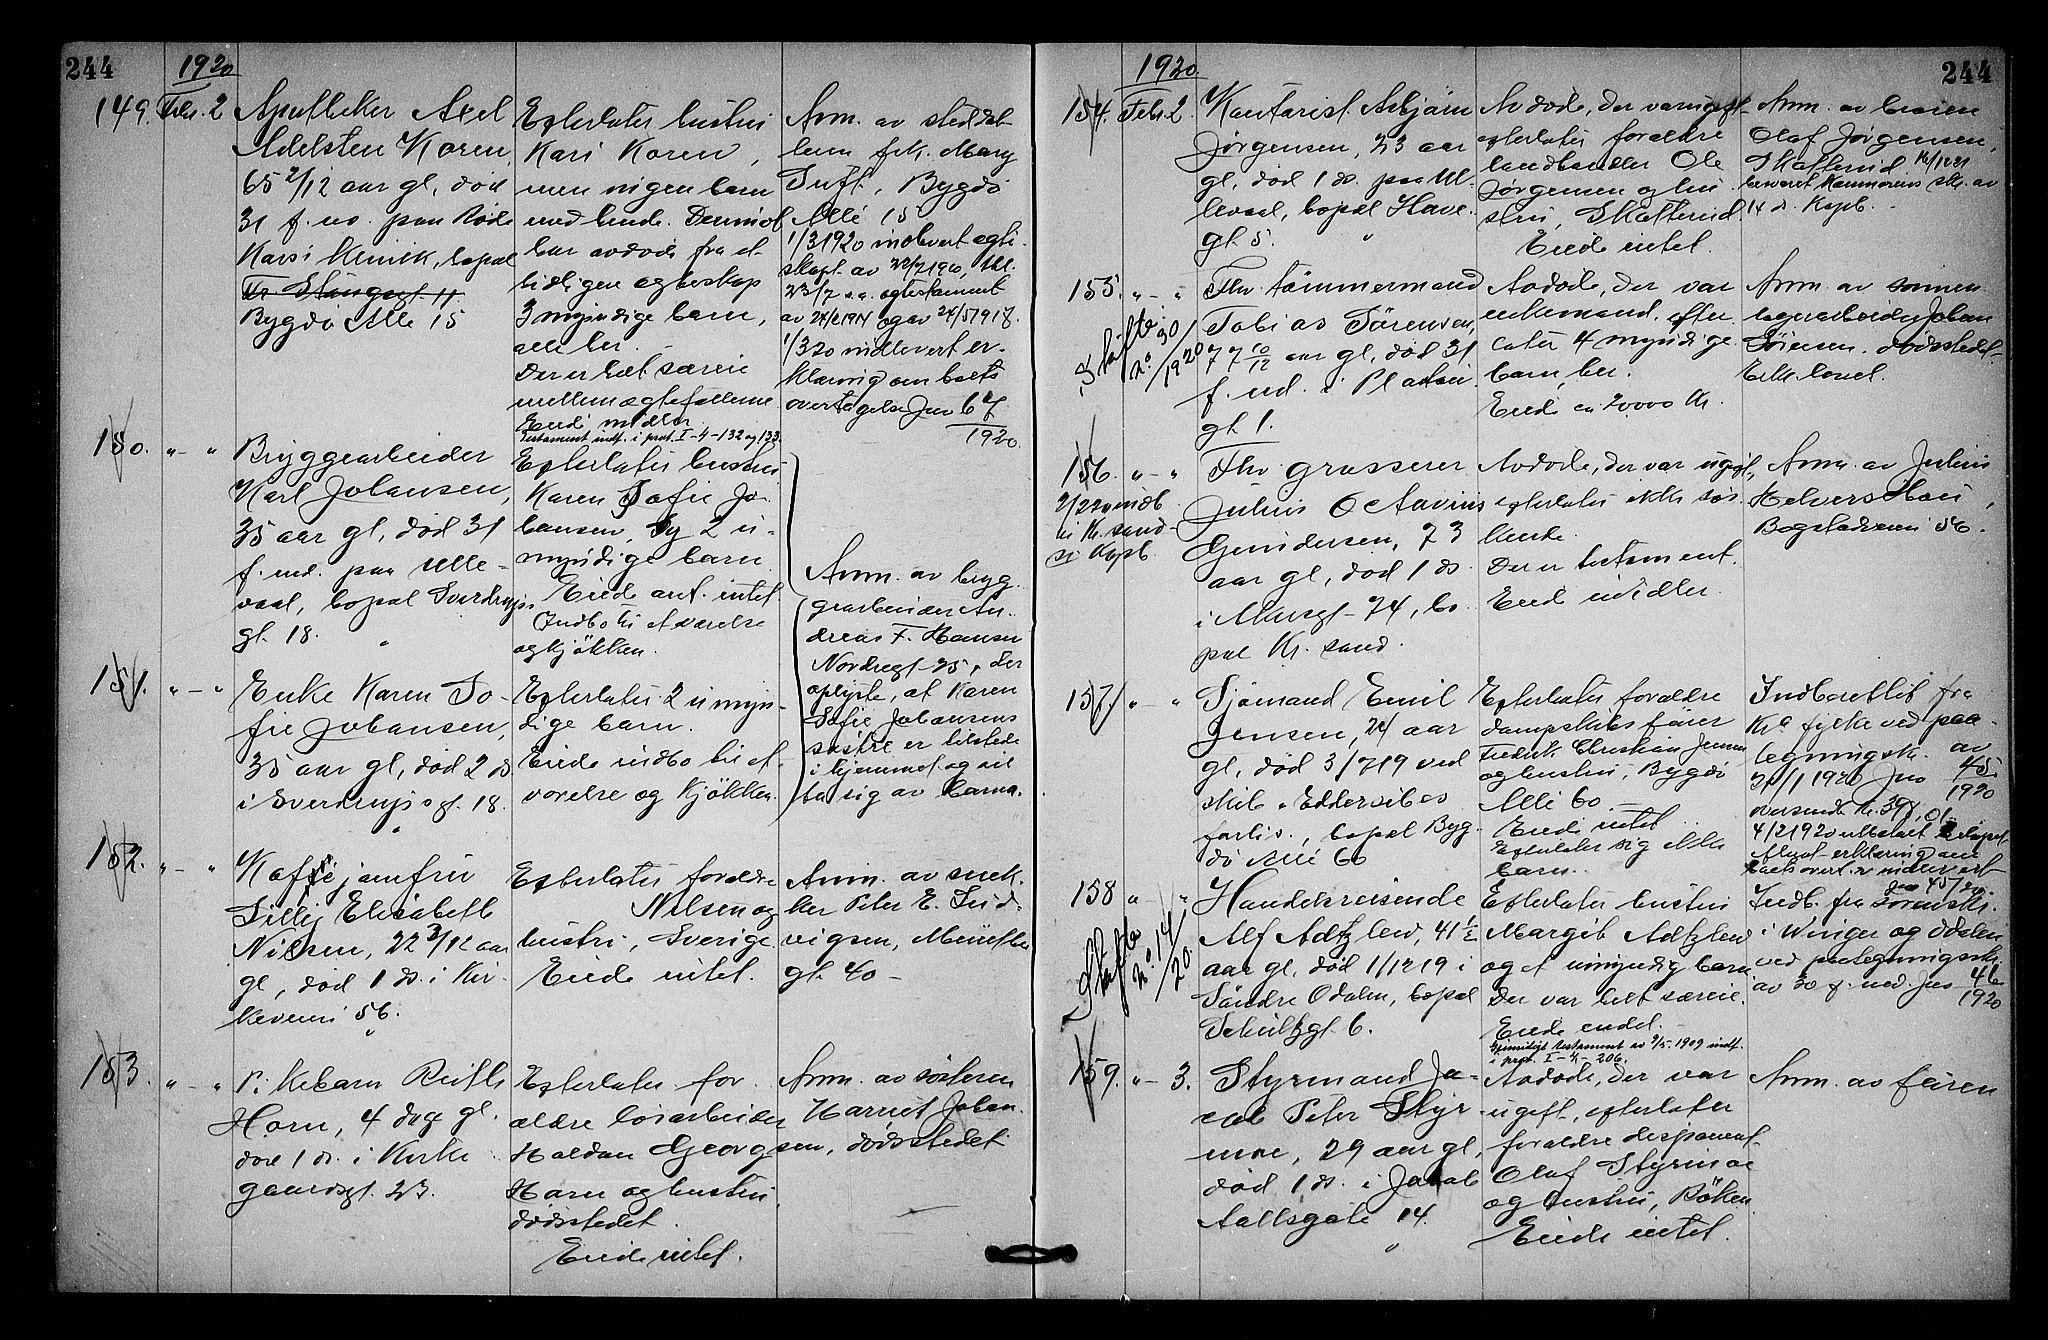 244
1920
149. Febr. 2
Apotheker Axel
Adelsten Koren,
65 2/12 aar gl, død
31 f. m. paa Røde
Kors Klinik, bopæl
Bygdø Alle 15
Efterlater hustru
Kari Koren,
men ingen barn
med hende. Derimot
har avdøde fra et
tidligere egteskap
3 myndige barn,
alle her.
Der er helt særeie
mellem egtefællerne
Eied midler.
Testament indf. i prot. I-4-132 og 133.
Anm. av
frk. Mary
Tuft, Bygdø
Allé 15
1/3 1920 indlevert egte-
skapt. av
23/7 s.a. og testament
av 24/2 1914 og av 24/5 1917.
1/3 20 indlevert er-
klæring om boets
overtagelse Jnr 67
1920.
150. " - "
Bryggearbeider
Karl Johansen,
35 aar gl, død 31
f. md. paa Ulle-
vaal, bopæl Sverdrups
gt. 18.
Efterlater hustru
Karen Sofie Jo-
hansen, og 2 u-
myndige barn
Eiede ant. intet.
Indbo til et værelse
og kjøkken.
Anm. av bryg-
gearbeider An-
dreas F. Hansen
Nordregt. 25, der
oplyste, at Karen
Sofie Johansens
søstre er tilstede
i hjemmet og vil
ta sig av barna.
151. " - "
Enke Karen So-
fie Johansen,
35 aar gl, død 2 ds
i Sverdrupsgt. 18.
"
Efterlater 2 umyn-
dige barn.
Eiede indbo til et
værelse og kjøkken.
152. " - "
Kaffejomfru
Lilly Elisabeth
Nilsen, 22 3/12 aar
gl, død 1 ds. i Kir-
keveien 56.
"
Efterlater forældre
Nilsen og
hustru, Sverige.
Eiede intet.
Anm. av snek-
ker Peter E. Lud-
vigsen,
gt. 40 -
153. " - "
Pikebarn Ruth
Horn, 4 dage gl.
død 1 ds. i Kirke-
gaardsgt. 23.
Efterlater for-
ældre løsarbeider
Haldan Georg
Horn og hustru
dødsstedet.
Eiede intet.
Anm. av søsteren
Harriet Johan-
sen, dødsstedet
1920.
244
154. Febr. 2.
Kontorist Asbjørn
Jørgensen, 23 aar
gl, død 1 ds. paa Ul-
levaal, bopæl Have-
gt. 5. "
Avdøde, der var ugift
efterlater forældre
landhandler Ole
Jørgensen og hu-
stru, Skotterud.
Eiede intet.
Anm. av broren
Olaf Jørgensen,
Skotterud. 16/12 21
besvaret Kæmnerens skr. av
14 ds. Kopib.
155. " - "
Skifte
No 30/1920
Fhv. tømmermand
Tobias Sørensen,
77 10/12 aar gl, død 31
f. md. i Platou-
gt 1.
Avdøde, der var
enkemand, efter-
later 4 myndige
barn, her.
Eiede ca 20000 Kr.
Anm. av sønnen
lagerarbeider Johan
Sørensen. dødsstedet
156. " - "
2/2 20 indb
til Kr. sand
Kopib.
Fhv grosserer
Julius Octavius
Gundersen, 73
aar gl, død 1 ds.
i 74, bo-
pæl Kr. sand.
Avdøde, der var ugift,
efterlater ikke søs-
kende.
Der er testament.
Eied midler.
Anm. av Julius
Halvorsthou,
Bogstadveien 56.
157. " - "
Sjømand Emil
Jensen, 24 aar
gl, død 3/7 19 ved
skib "
forlis., bopæl Byg-
dø Alle 60
Efterlater forældre
dampskibsfører
Fredrik Christian Jensen
og hustru, Bygdø
Allé 60. -
Eiede intet.
Efterlater sig ikke
barn.
Indberettet fra
Kra fylke ved paa-
tegningsskr. av
30/1 1920 Jnr 45
1920
oversendte Kr. 398,01
4/2 1920 utbetalt beløpet,
erklæring om
boets overt. er indlevert
Jnr 45/20.
158 " - "
Skifte
No 14/20.
Handelsreisende
Alf Adtzlew, 41 1/2
aar gl, død 1/12 19 i
Søndre Odalen, bopæl
Schultzgt. 6.
Efterlater hustru
Margit Adtzlew
og et umyndig barn
Der var helt særeie.
Eiede endel. -
Gjensidigt testament av 9/5 1909 indf.
i prot. I-4-206.
Indb. fra Sorenskr.
i Winger og Odalen
ved paategningsskr.
av 30 f. md. Jnr 46
1920
159. " - 3.
Styrmand Ja-
cob Peter Styr-
moe, 29 aar gl,
død 1 ds. i Jacob
Aallsgate 14.
"
Avdøde, der var
ugift, efterlater
forældre disponent
Olaf Styrmoe
og hustru, Røken.
Eiede intet.
Anm. av faren